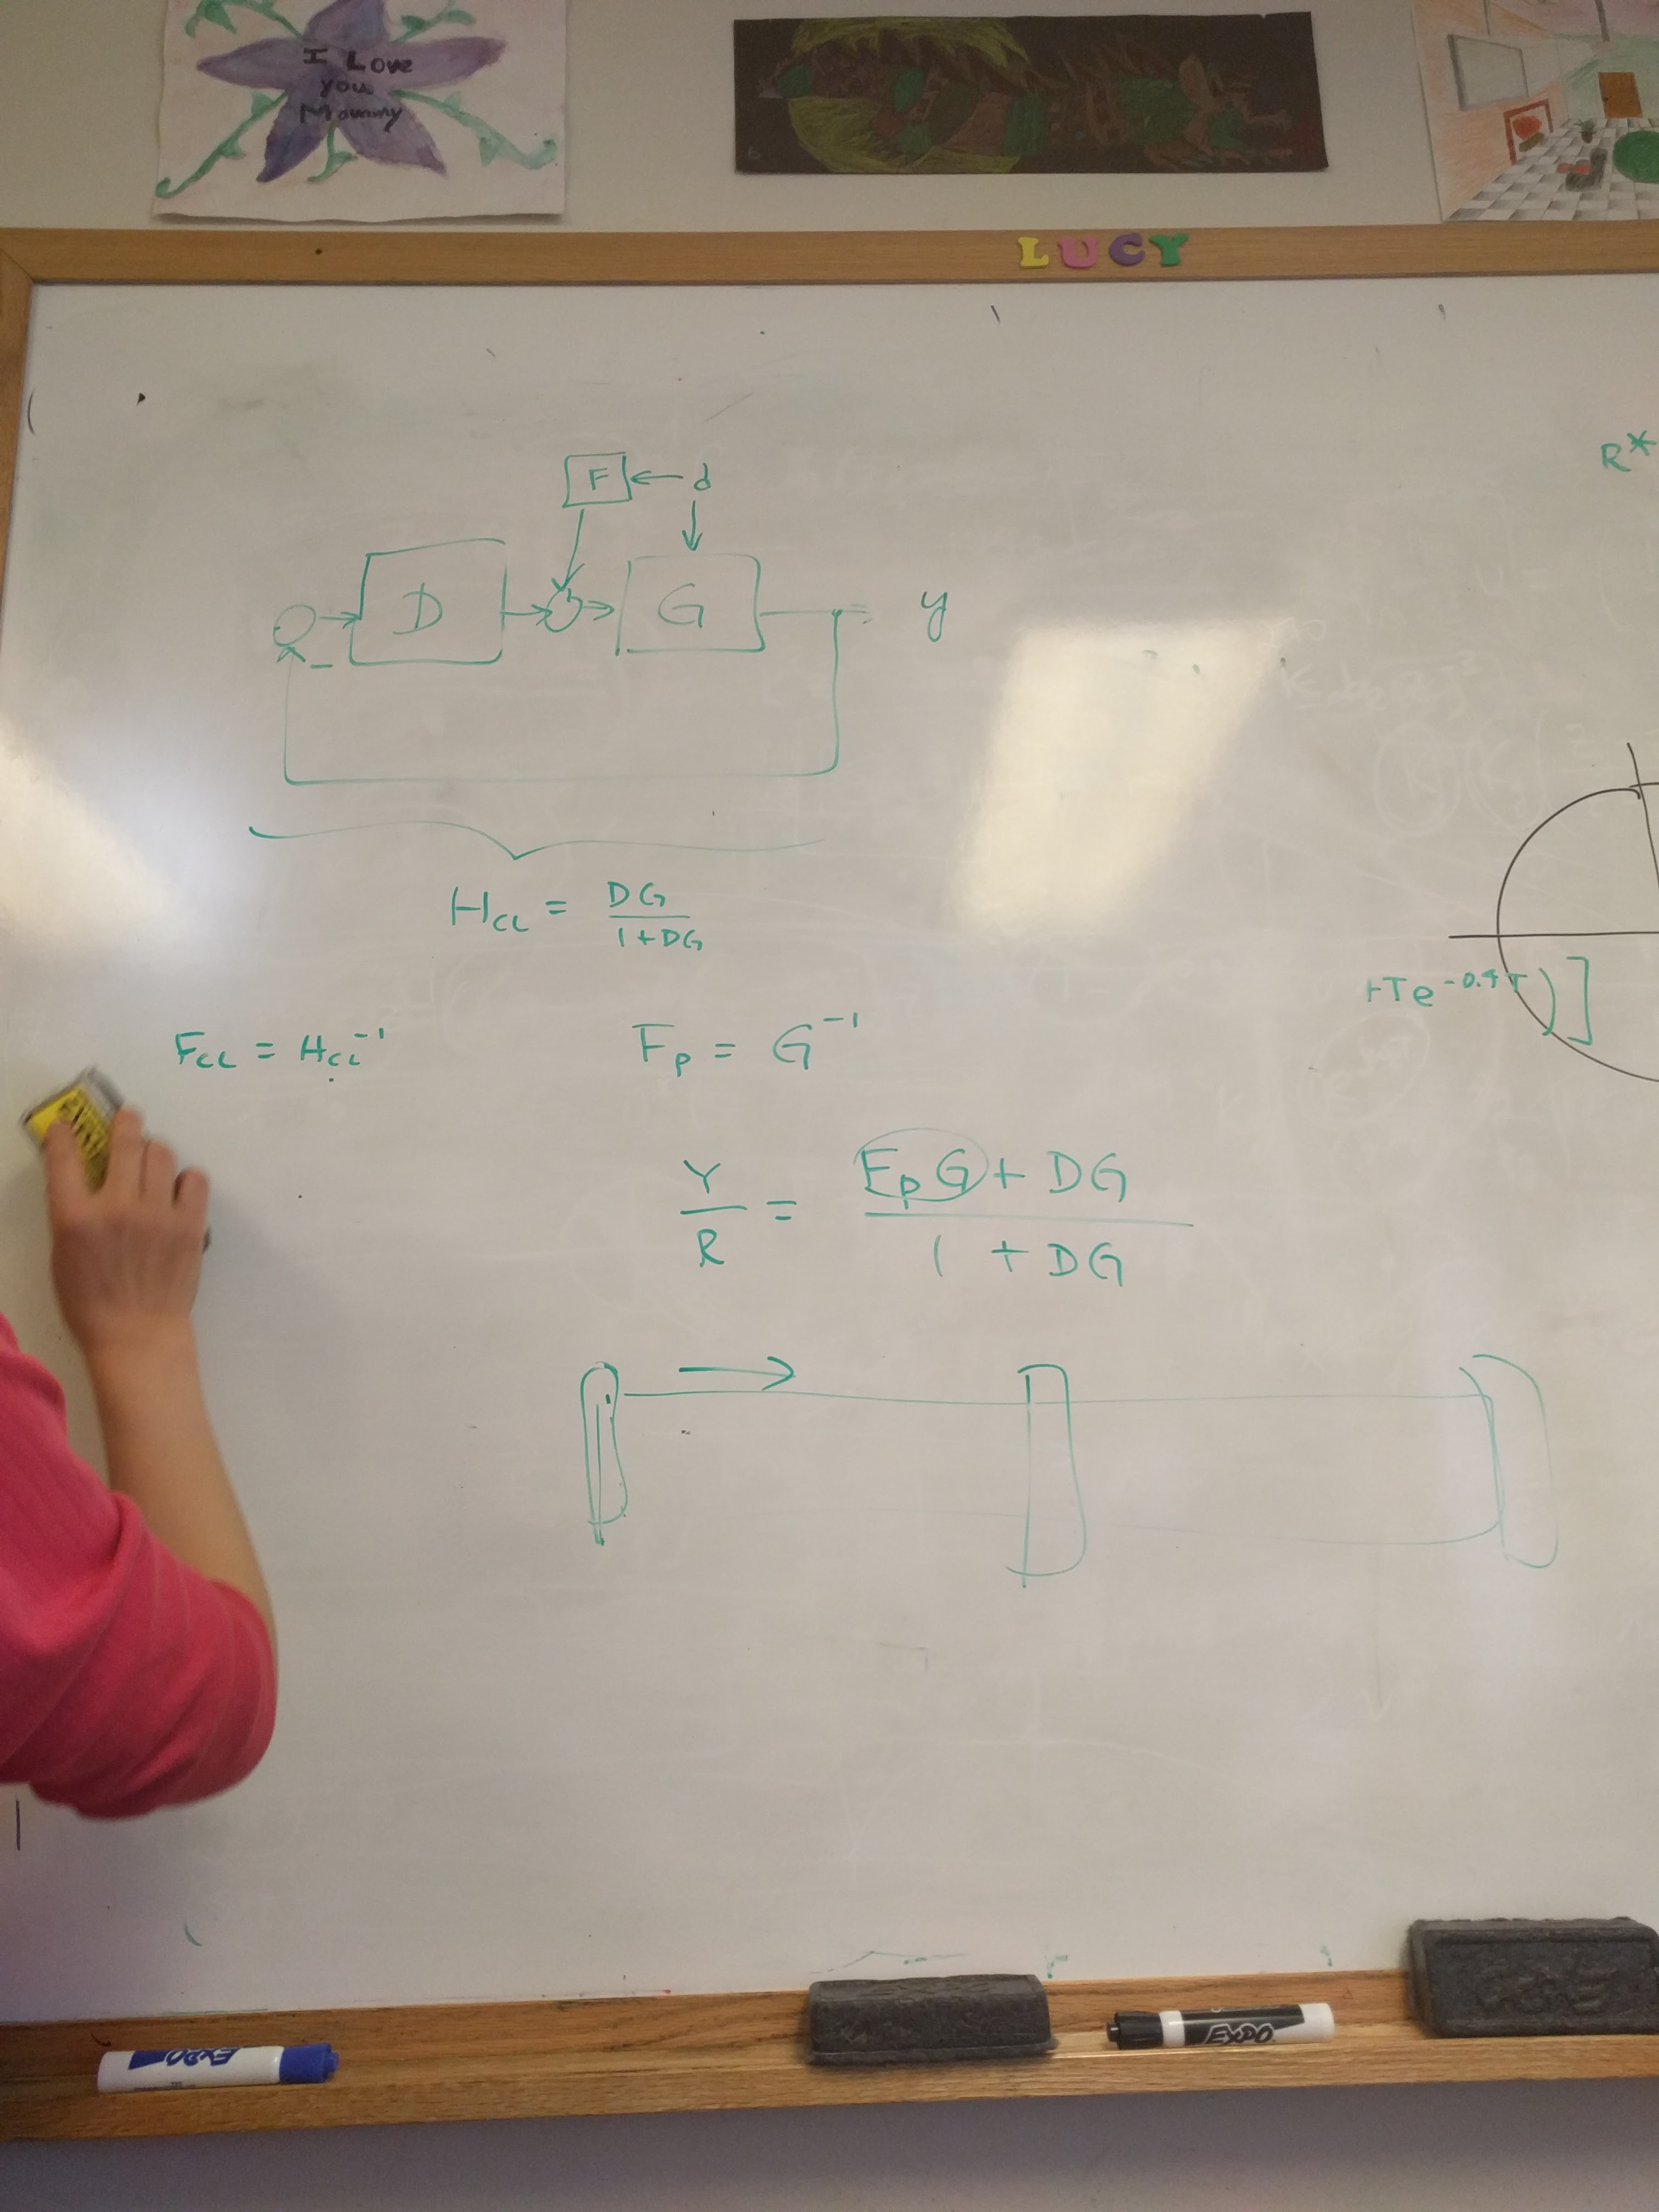 I Love
you
Mommy
LUCY
R*
F ← d
D G y
-
H_CL = DG / 1+DG
+Te^-0.4T)]
F_CL = H_CL^-1
F_p = G^-1
Y/R = F_p G + DG / 1 + DG
EXPO
EXPO